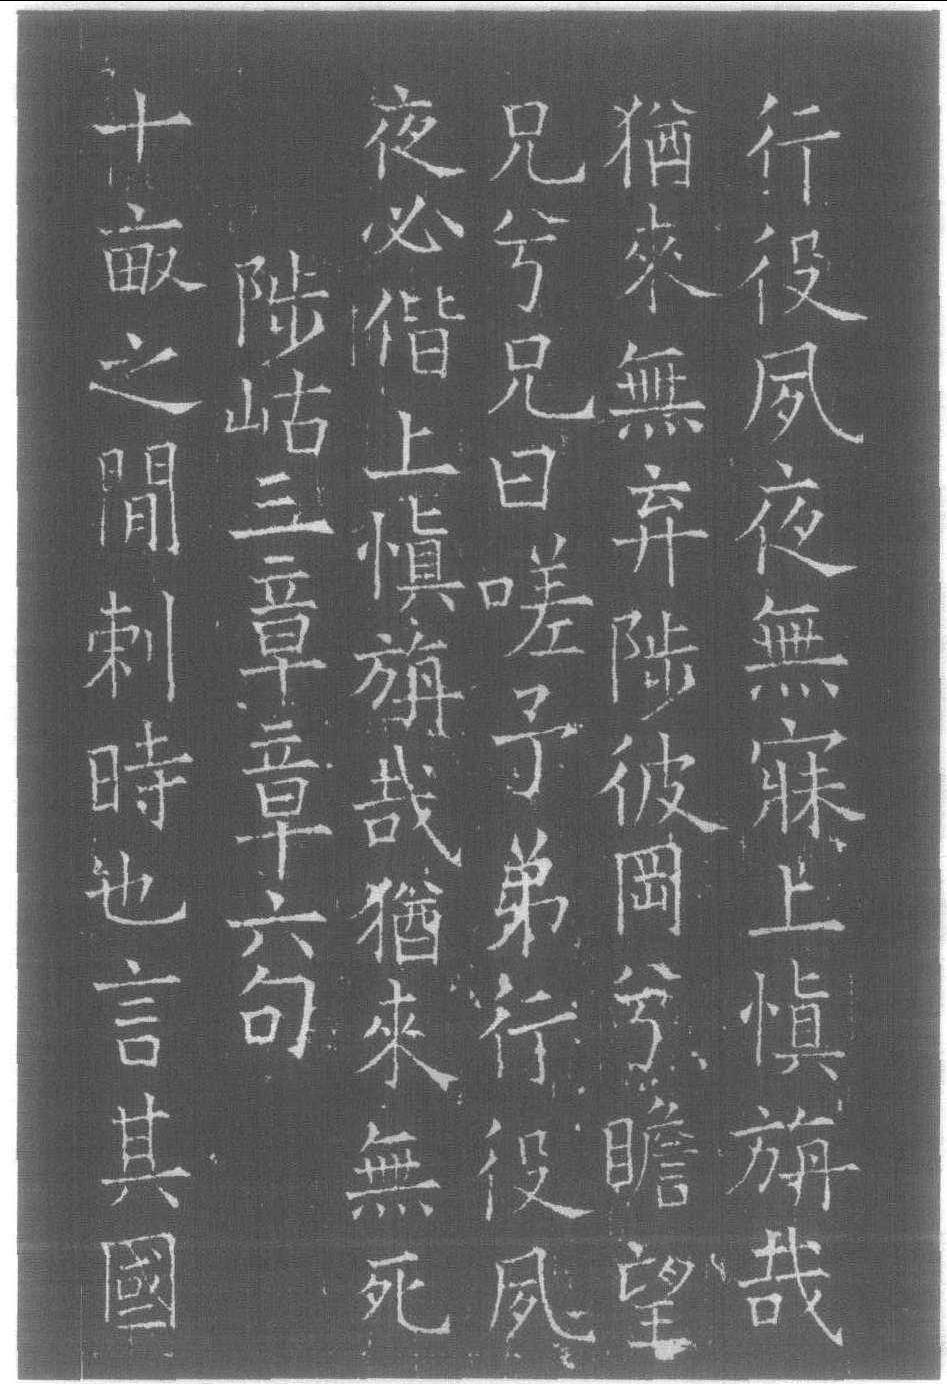 行役夙夜無寐上慎旃哉
猶來無弃陟彼岡兮瞻望
兄兮兄曰嗟予弟行役夙
夜必偕上慎旃哉猶來無死
陟岵三章章六句
十畝之閒刺時也言其國